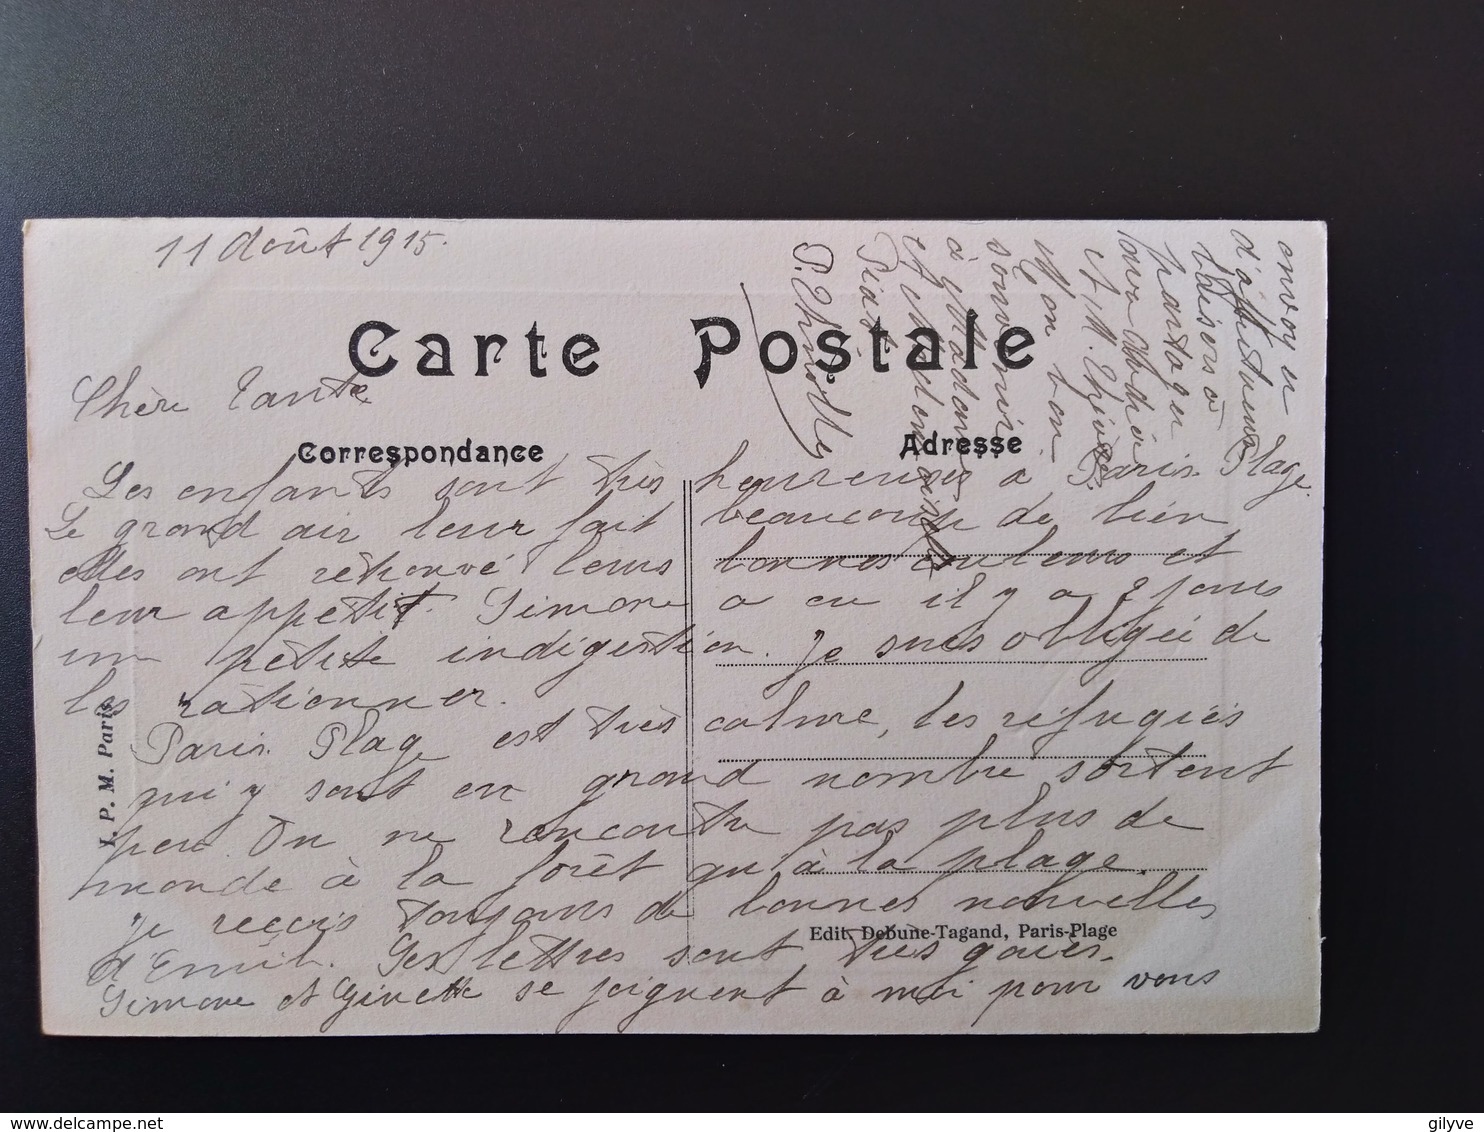 11 Août 1915.
Carte Postale
Chère Tante
Correspondance
Adresse
Les enfants sont très heureuses à Paris-Plage.
Le grand air leur fait beaucoup de bien,
elles ont retrouvé leurs bonnes couleurs et
leur appetit. Simone a eu il y a 2 jours
une petite indigestion. Je suis obligée de
les rationner.
Paris Plage est très calme, les réfugiés
qui y sont en grand nombre sortent
peu. On ne rencontre pas plus de
monde à la forêt qu'à la plage.
Je reçois toujours de bonnes nouvelles
d'Emile. Ses lettres sont très gaies.
Simone et Ginette se joignent à moi pour vous
envoyer
d'affectueux
baisers à
partager
avec
A M.
Mon bon
souvenir
à Madame
et Mademoiselle
Piat
P.
I. P. M. Paris.
Edit. Debune-Tagand, Paris-Plage
delcampe.net
gilyve